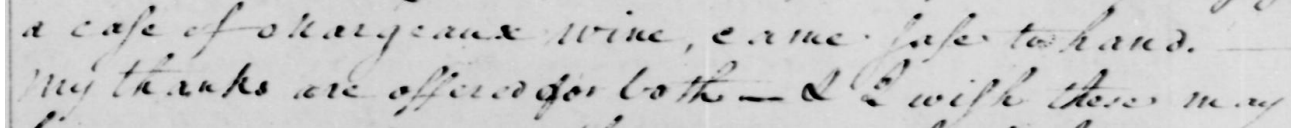 a case of Margeaux wine, came safe to hand. —
My thanks are offered for both — & I wish there may